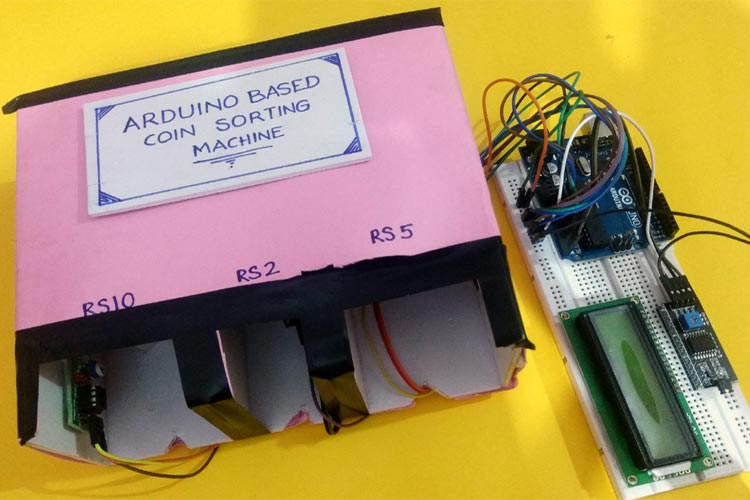 ARDUINO BASED
COIN SORTING
MACHINE
RS10
RS2
RS5
UNO
ARDUINO